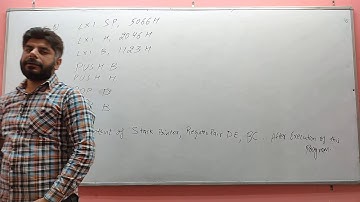 LXI SP, 5066 H
LXI H, 2045 H
LXI B, 1123 H
PUSH B
PUSH H
POP D
B
Content of Stack Pointer, Register Pair DE, BC... After Execution of this
Program